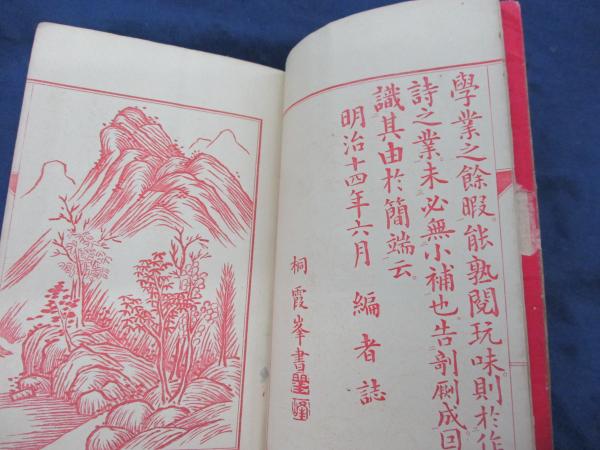 學業之餘暇能熟閲玩味則於作
詩之業未必無小補也告剞劂成回
識其由於簡端云
明治十四年六月　編者誌
桐霞峯書